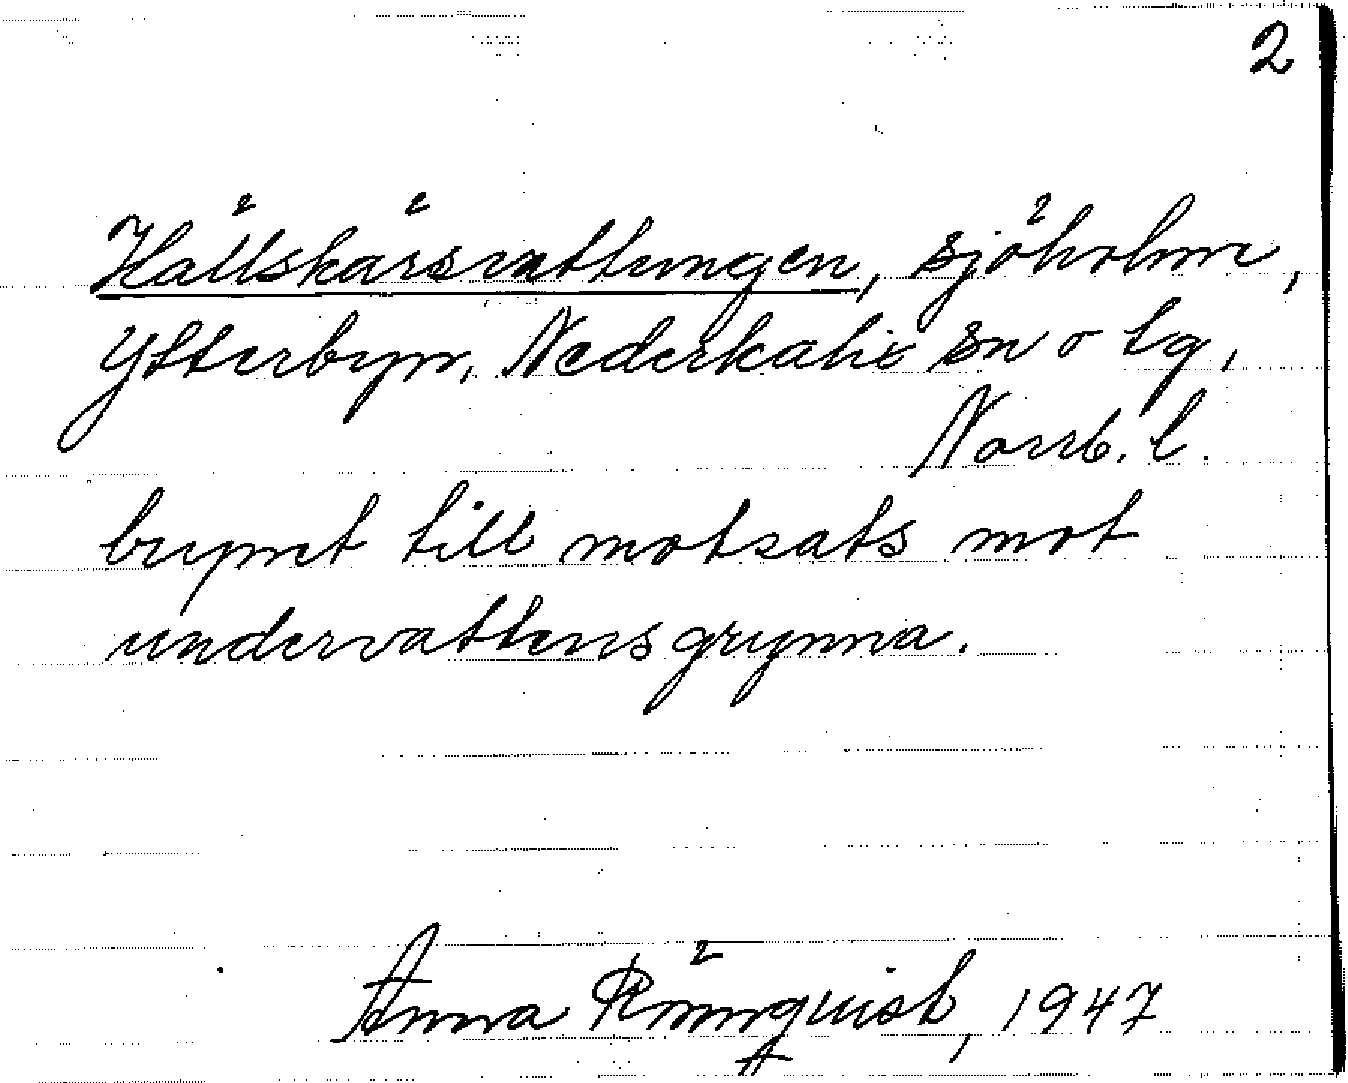 2
Hällskärsrattungen, sjöholme,
Ytterbyn, Nederkalix sn o tg,
Norrb. l.
brynet till motsats mot
undervattensgrynna.
Anna Rönnquist, 1947